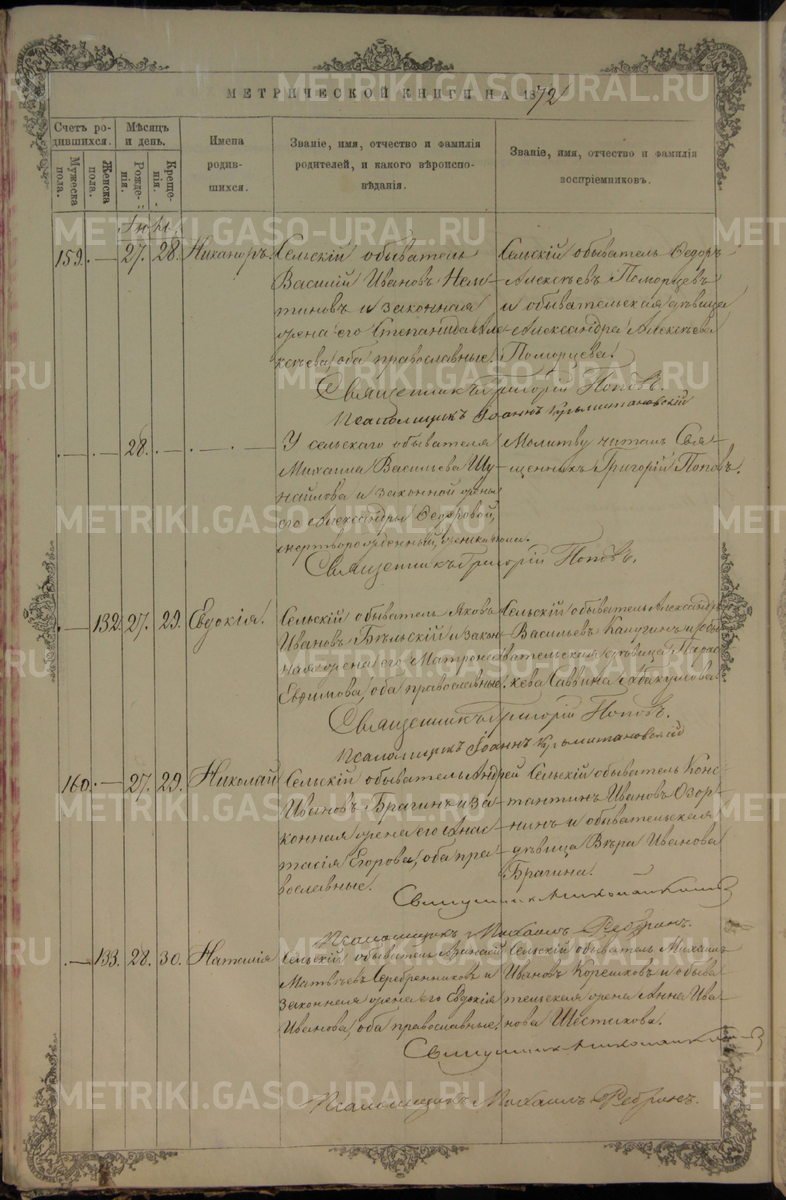 МЕТРИЧЕСКОЙ КНИГИ НА 1872
Счетъ родившихся.
Мѣсяцъ и день.
Имена родившихся.
Званіе, имя, отчество и фамилія родителей, и какого вѣроисповѣданія.
Званіе, имя, отчество и фамилія воспріемниковъ.
Мужеска пола.
Женска пола.
Рожденія.
Крещенія.
159. 27. 28. Никаноръ.
Сельскій обыватель
Василій Ивановъ
и законная
жена его Степанида Але
ксѣева, оба православные.
Сельскій обыватель Ѳедоръ
Алексѣевъ Поморцевъ
и обывательская дѣвица
Александра Алексѣева
Поморцева.
Священникъ Григорій Поповъ.
Псаломщикъ Іоаннъ
28.
У сельскаго обывателя
Михаила Васильева
и законной жены
его Александры Ѳедоровой,
мертворожденный,
Молитву читалъ Свя-
щенникъ Григорій Поповъ.
Священникъ Григорій Поповъ.
132. 27. 29. Евдокія.
Сельскій обыватель Яковъ
Ивановъ Бѣльскій и закон
ная жена его Матрона
Евфимова, оба православные.
Сельскій обыватель Александръ
Васильевъ Капугинъ и обы
вательская дѣвица
Саввина Абакумова
Священникъ Григорій Поповъ.
Псаломщикъ Іоаннъ
160. 27. 29. Николай
Сельскій обыватель Андрей
Ивановъ Брагинъ и за
конная жена его Анас
тасія Егорова, оба пра
вославные.
Сельскій обыватель Конс
тантинъ Ивановъ Озор
нинъ и обывательская
дѣвица Вѣра Иванова
Брагина.
Священникъ
Псаломщикъ Михаилъ Ребринъ.
133. 28. 30. Наталія
Сельскій обыватель
Матвѣевъ Серебренниковъ и
законная жена его Евдокія
Иванова, оба православные.
Сельскій обыватель Михаилъ
Ивановъ Корешковъ и обыва
тельская жена Анна Ива
нова Шестакова.
Священникъ
Псаломщикъ Михаилъ Ребринъ.
METRIKI.GASO-URAL.RU